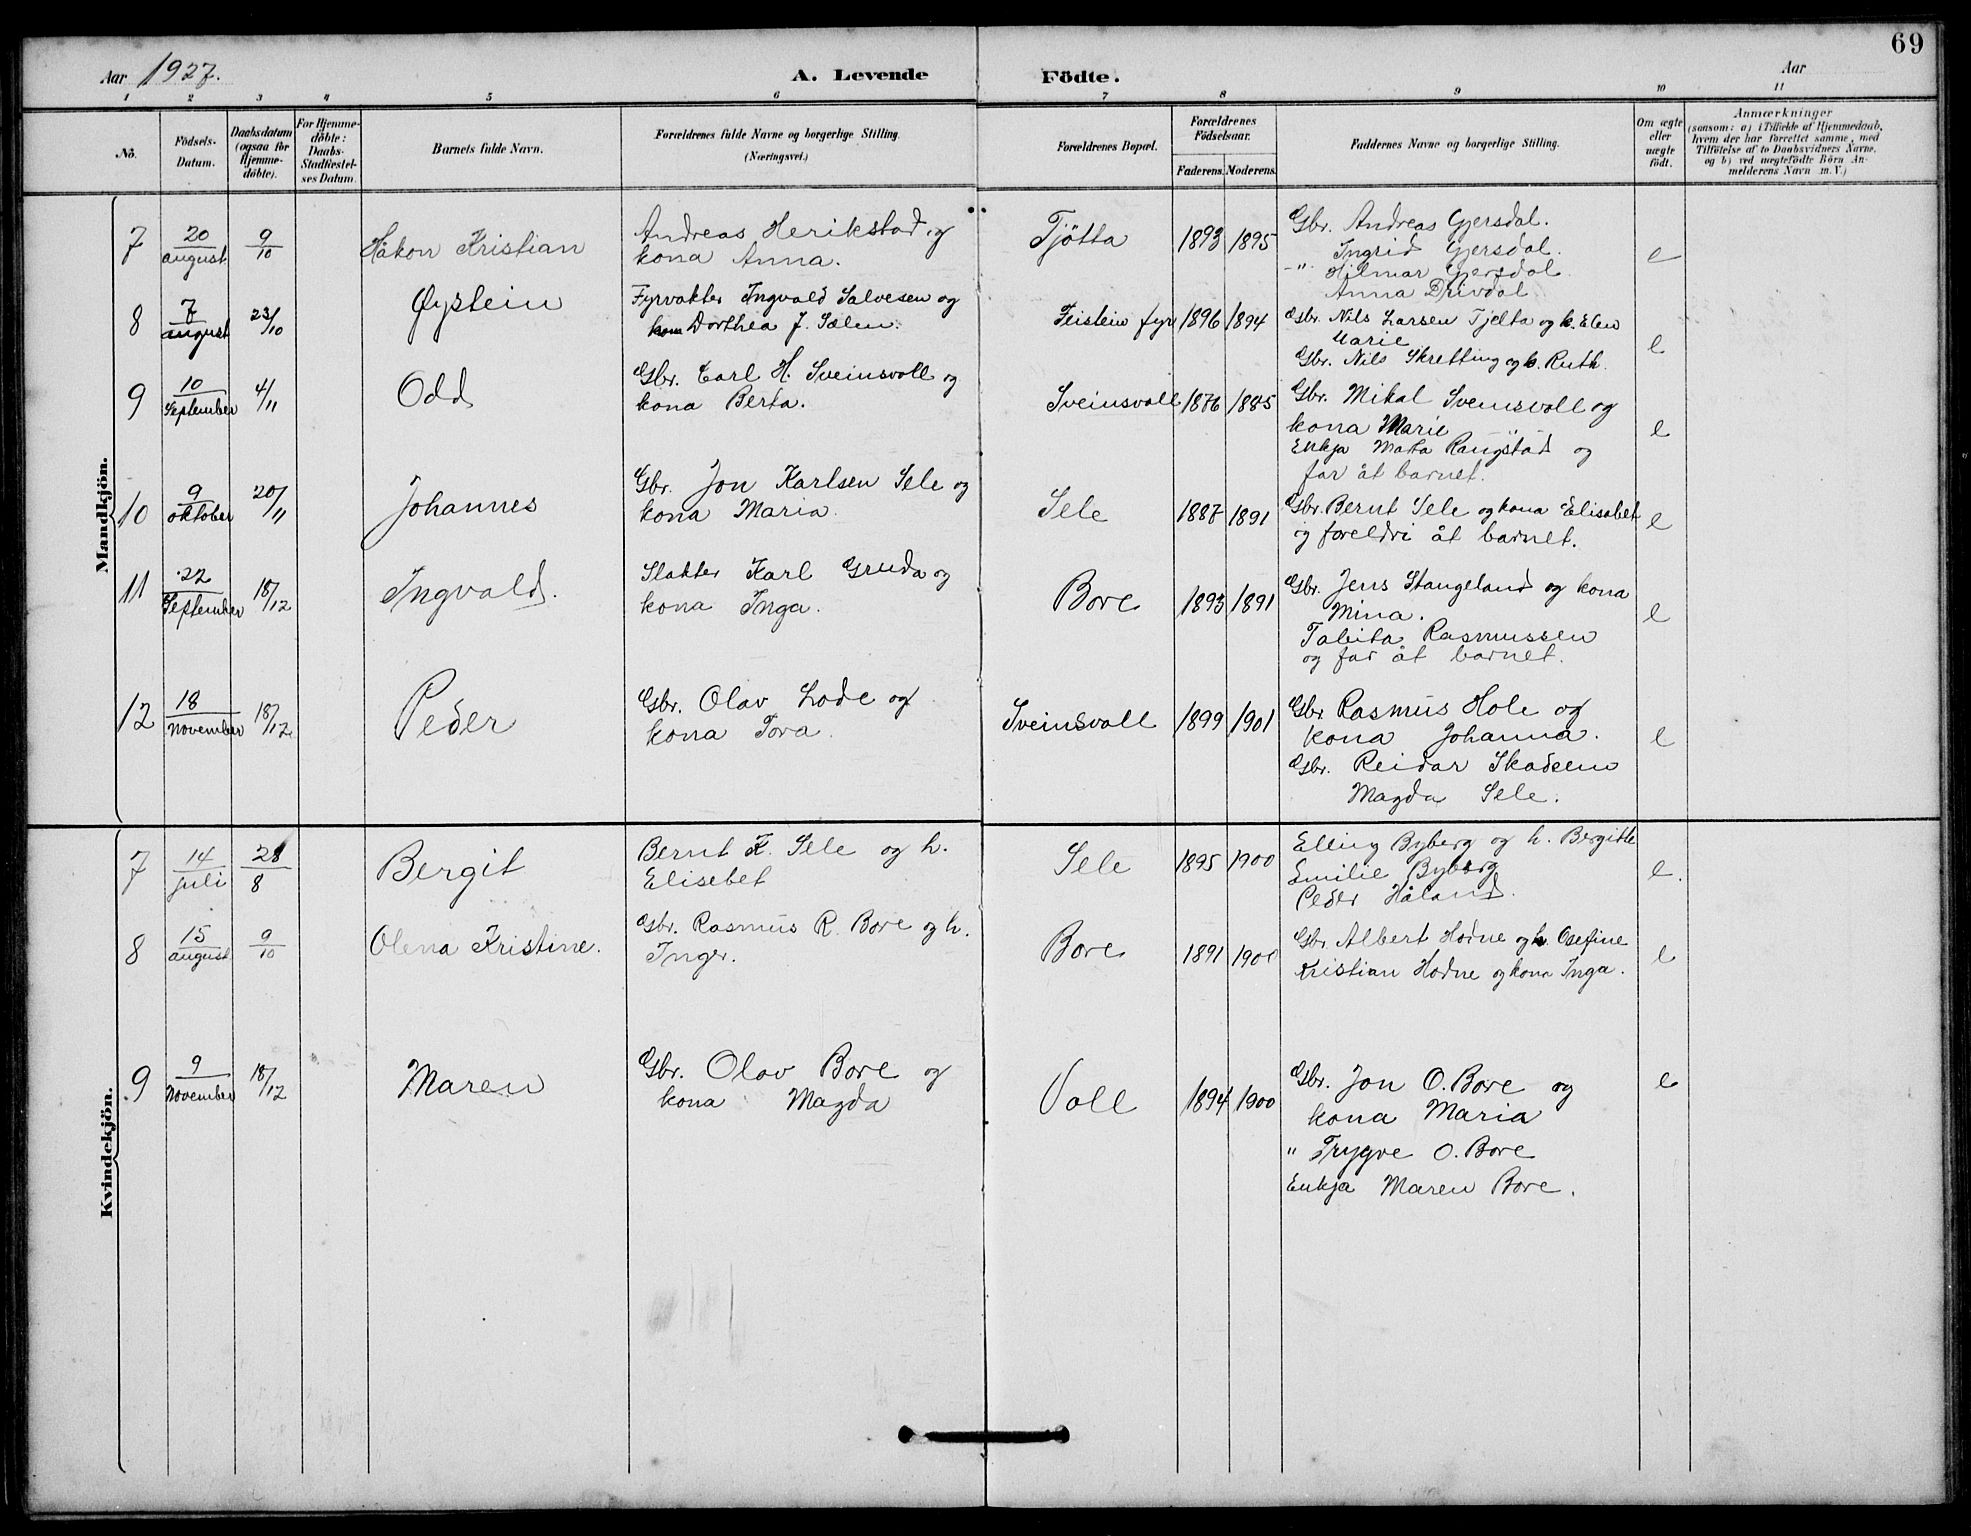 69
Aar 1927.
A. Levende Födte.
Aar
1 2 3 4 5 6 7 8 9 10 11
No.
Födsels-Datum.
Daabsdatum (ogsaa for Hjemme-döbte).
For Hjemme-döbte: Daabs-Stadfæstel-ses Datum.
Barnets fulde Navn.
Forældrenes fulde Navne og borgerlige Stilling. (Næringsvei.)
Forældrenes Bopæl.
Forældrenes Födselsaar.
Faderens. Moderens.
Faddernes Navne og borgerlige Stilling.
Om ægte eller uægte födt.
Anmærkninger
(saasom: a) i Tilfælde af Hjemmedaab,
hvem der har forrettet samme, med
Tilföielse af to Daabsvidners Navne,
og b) ved uægtefödte Börn An-
melderens Navn m. V.)
Mandkjön.
7 20 august 9/10 Håkon Kristian
Andreas Herikstad og
kona Anna.
Tjøtta 1893 1895
Gbr. Andreas Gjersdal.
Ingrid Gjersdal.
-"- Hilmar Gjersdal.
Anna Drivdal
e
8 7 august 23/10 Øystein
Fyrvakter Ingvald Salvesen og
kona Dorthea J. Sælen.
Feistein fyr 1896 1894
Gbr. Nils Larsen Tjelta og k. Elen
Marie
Gbr. Nils Skretting og k. Ruth.
e
9 10 September 4/11 Odd
Gbr. Carl H. Sveinsvoll og
kona Berta.
Sveinsvoll 1876 1885
Gbr. Mikal Sveinsvoll og
kona Marie
Enkja Marta Raugstad og
far åt barnet.
e
10 9 oktober 20/11 Johannes
Gbr. Jon Karlsen Sele og
kona Maria.
Sele 1887 1891
Gbr. Bernt Sele og kona Elisabet
og foreldri åt barnet.
e
11 22 September 18/12 Ingvald.
Slakter Karl Gruda og
kona Inga.
Bore 1893 1891
Gbr. Jens Stangeland og kona
Mina.
Tabita Rasmussen
og far åt barnet.
e
12 18 November 18/12 Peder
Gbr. Olav Lode og
kona Tora.
Sveinsvoll 1899 1901
Gbr. Rasmus Hole og
kona Johanna.
Gbr. Reidar Skadsem
Magda Sele.
e
Kvindekjön.
7 14 juli 28/8 Bergit
Bernt K. Sele og h.
Elisebet
Sele 1895 1900
Elling Byberg og h. Bergitte
Emilie Byberg
Peder Håland.
e.
8 15 august 9/10 Olena Kristine.
Gbr. Rasmus R. Bore og h.
Inger.
Bore 1891 1900
Gbr. Albert Hodne og h. Osefine
Kristian Hodne og kona Inga.
e
9 9 November 18/12 Maren
Gbr. Olav Bore og
kona Magda
Voll 1894 1900
Gbr. Jon O. Bore og
kona Maria
" Trygve O. Bore
Enkja Maren Bore.
e